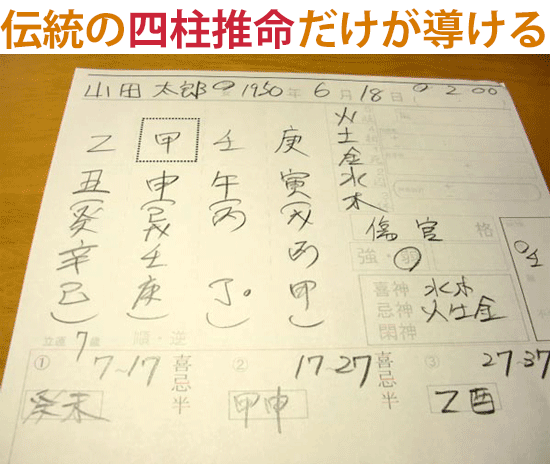 伝統の四柱推命だけが導ける
山田 太郎 1950年 6月18日 2:00
乙 甲 壬 庚
丑 申 午 寅
(癸 (戊 (丙 (戊
辛 壬 丙
己) 庚) 丁。) 甲)
火
土
金
水
木
傷官 格
強・弱
喜神 水木
忌神 火土金
閑神
立運 7歳 順・逆
① 7~17 喜忌半 ② 17~27 喜忌半 ③ 27~37
癸未 甲申 乙酉